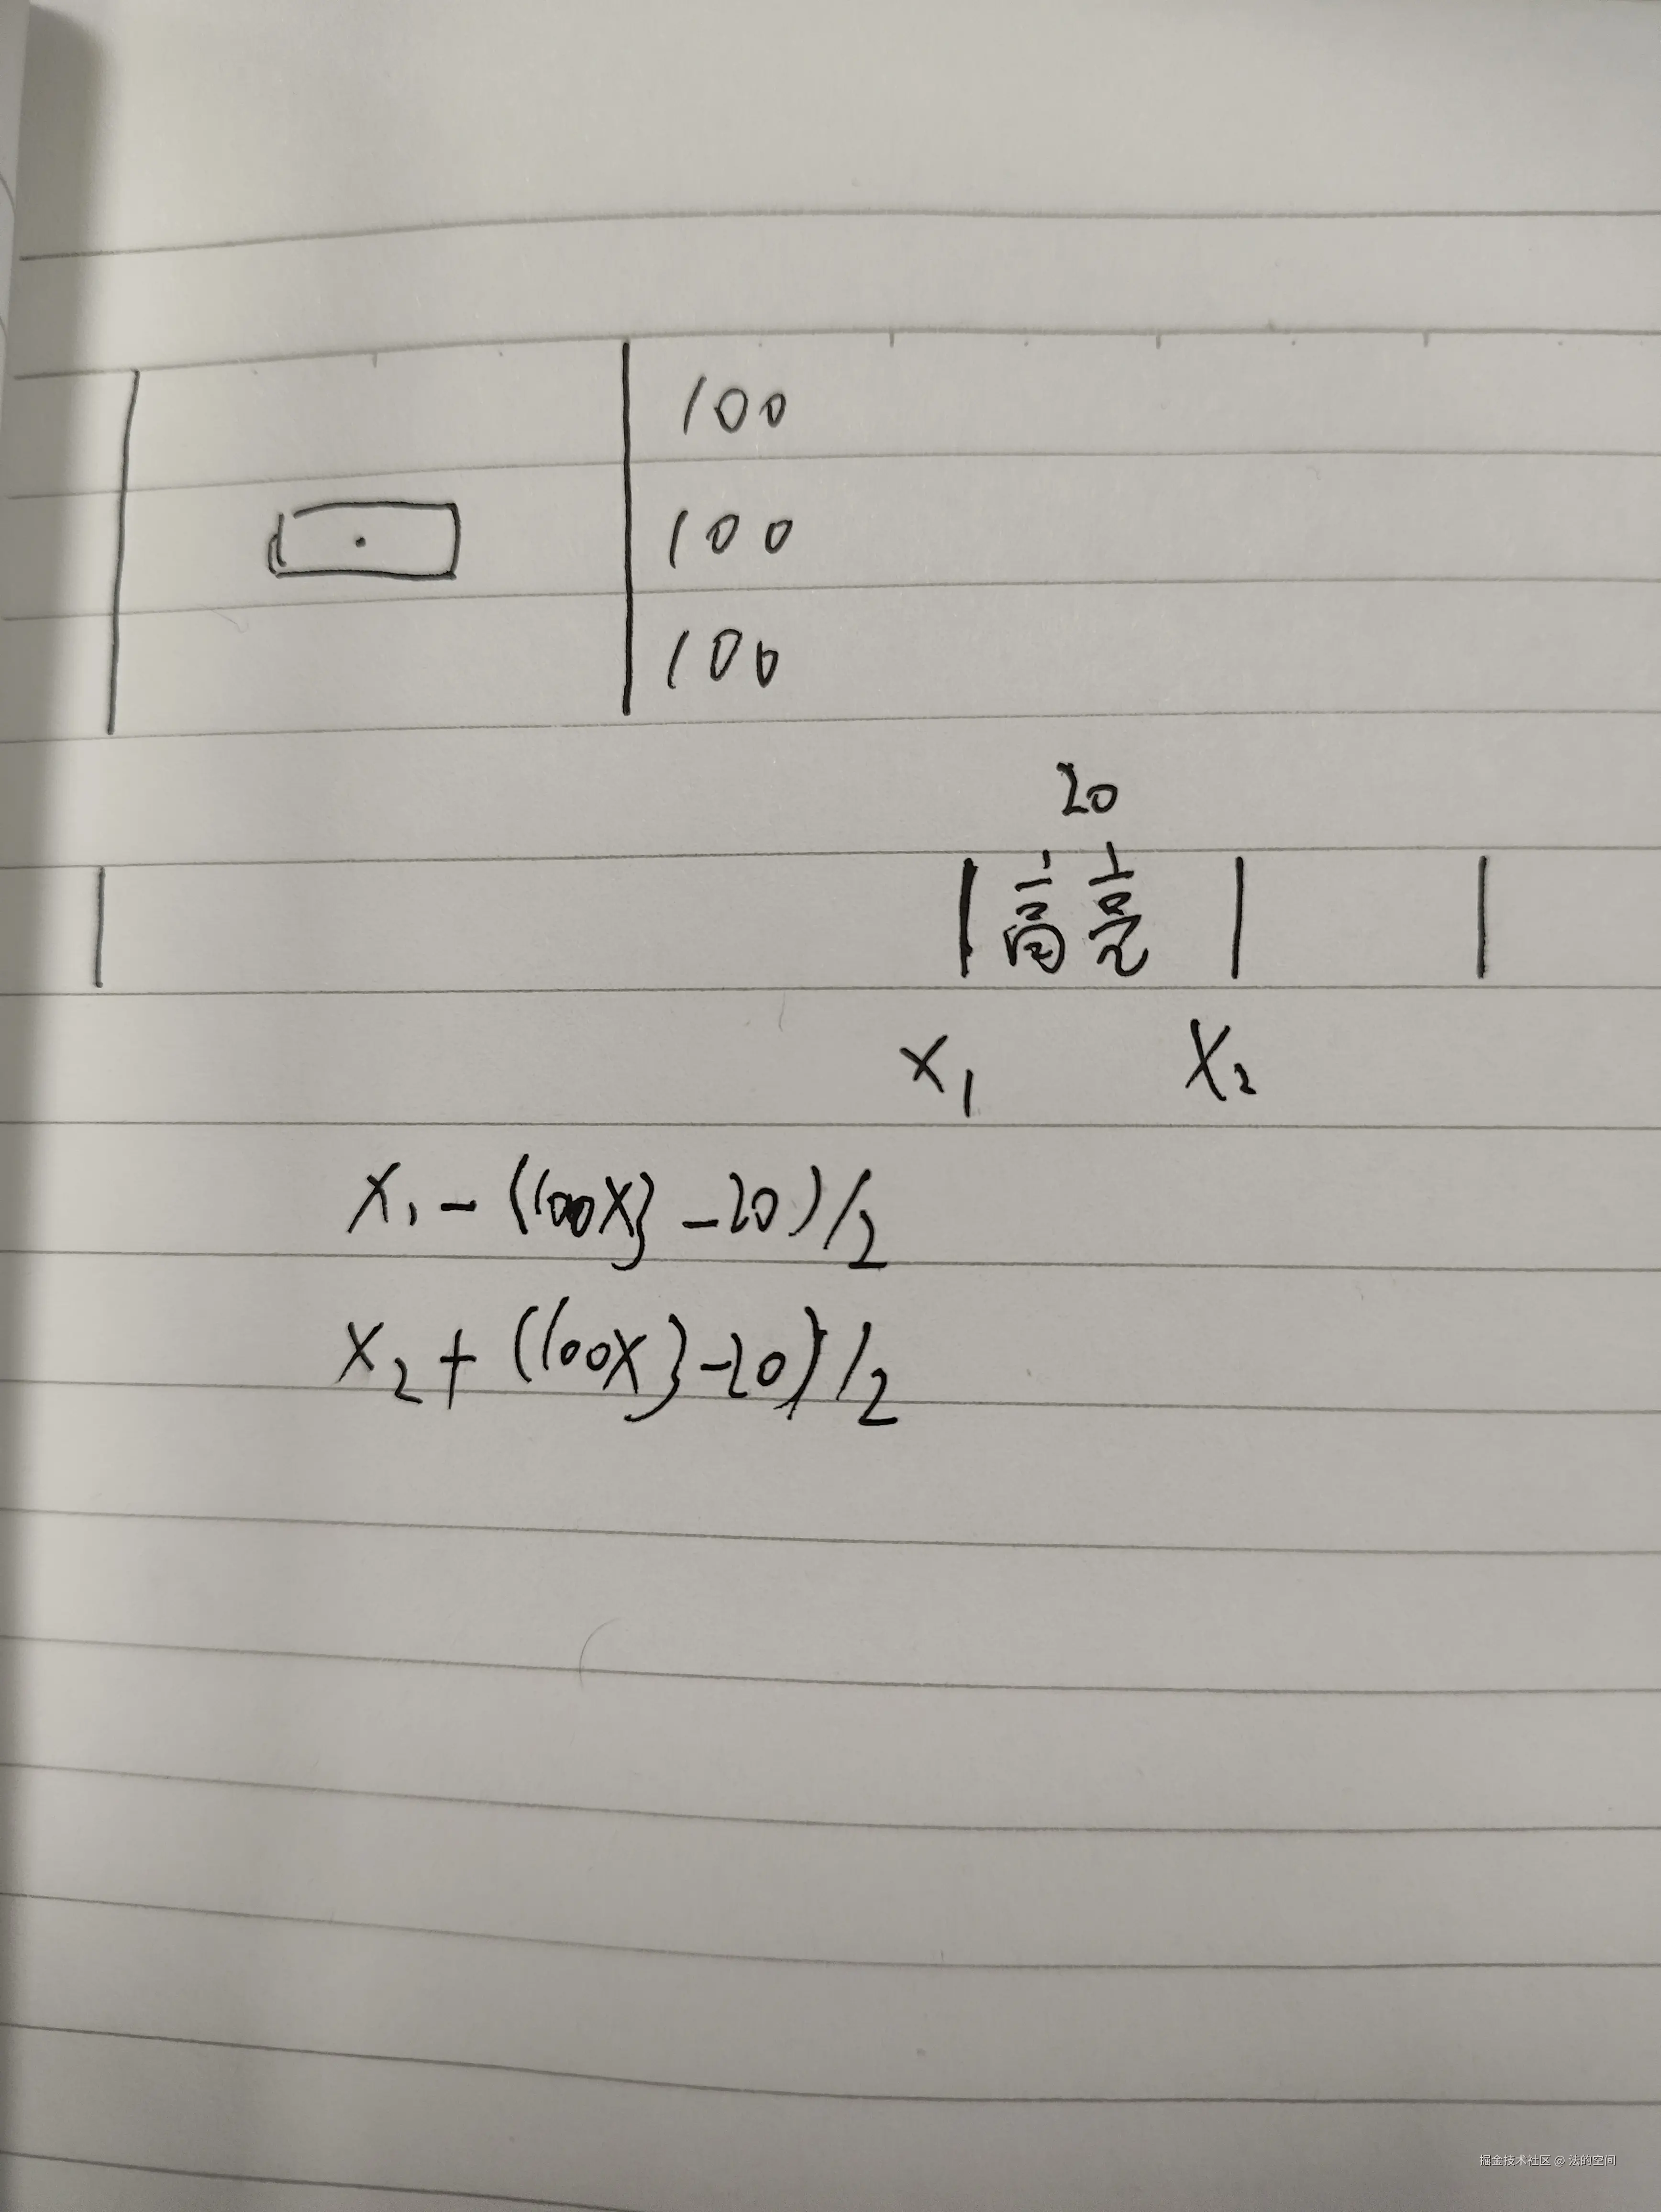 100
100
100
20
高亮
x₁ x₂
x₁-(100x3-20)/2
x₂+(100x3-20)/2
掘金技术社区 @ 法的空间